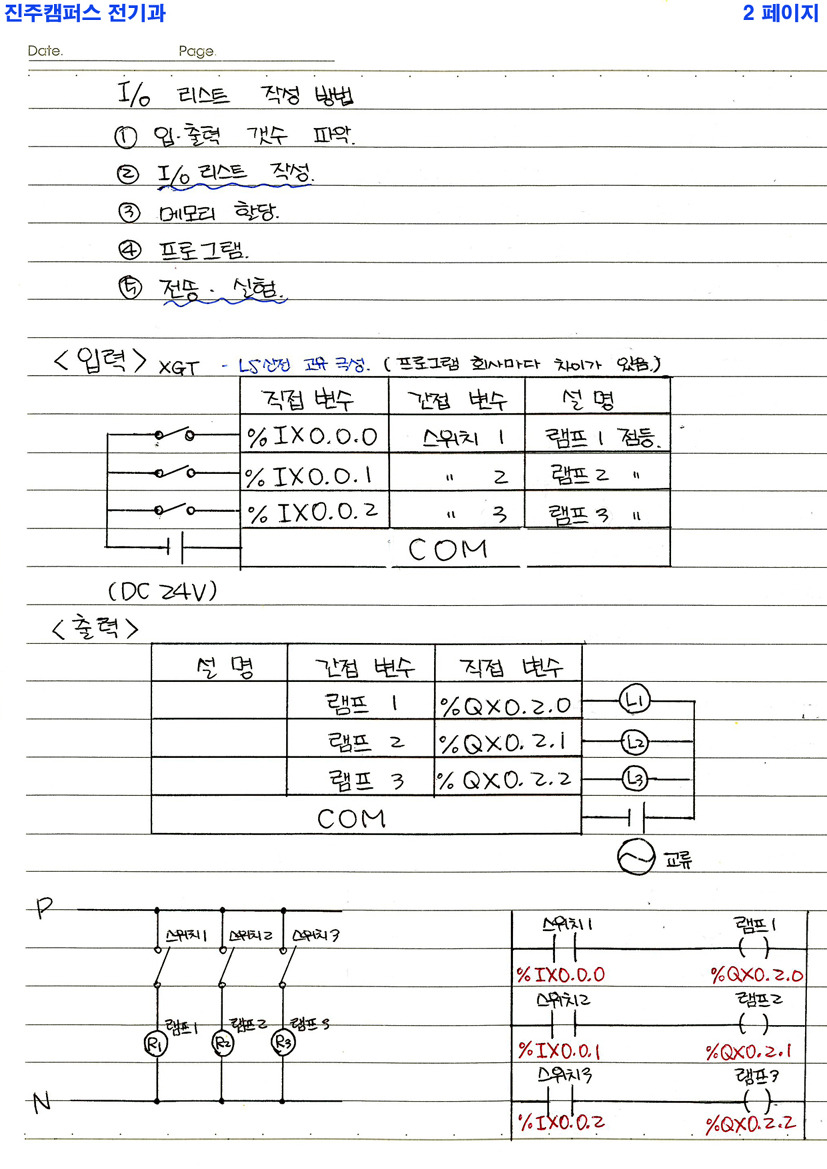 진주캠퍼스 전기과 2 페이지
Date. Page.
I/o 리스트 작성 방법
① 입·출력 갯수 파악.
② I/o 리스트 작성.
③ 메모리 할당.
④ 프로그램.
⑤ 전송 · 실험.
<입력> XGT - LS산전 고유 특성. (프로그램 회사마다 차이가 있음.)
직접 변수 간접 변수 설 명
%IX0.0.0 스위치 1 램프 1 점등.
%IX0.0.1 " 2 램프 2 "
%IX0.0.2 " 3 램프 3 "
COM
(DC 24V)
<출력>
설 명 간접 변수 직접 변수
램프 1 %QX0.2.0 L1
램프 2 %QX0.2.1 L2
램프 3 %QX0.2.2 L3
COM
교류
P
스위치1 스위치2 스위치3
램프1 램프2 램프3
R1 R2 R3
N
스위치1 램프1
%IX0.0.0 %QX0.2.0
스위치2 램프2
%IX0.0.1 %QX0.2.1
스위치3 램프3
%IX0.0.2 %QX0.2.2